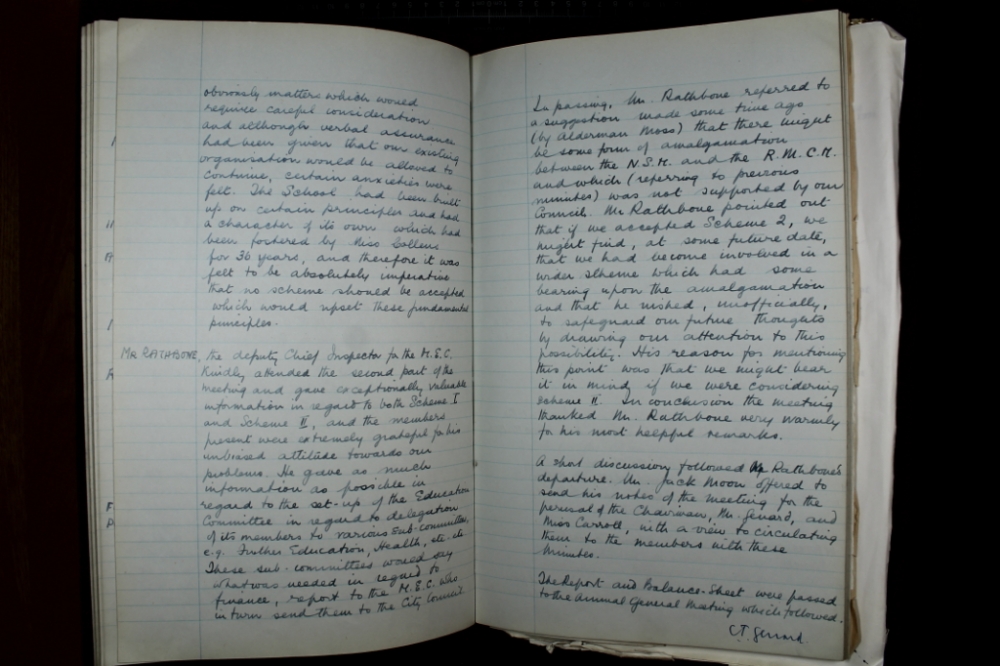 obviously matters which would
require careful consideration
and although verbal assurance
had been given that our existing
organisation would be allowed to
continue, certain anxieties were
felt. The School had been built
up on certain principles and had
a character of its own which had
been fostered by Miss Collens
for 36 years, and therefore it was
felt to be absolutely imperative
that no scheme should be accepted
which would upset these fundamental
principles.
MR RATHBONE, the deputy Chief Inspector for the M.E.C.
Kindly attended the second part of the
meeting and gave exceptionally valuable
information in regard to both Scheme I
and Scheme II, and the members
present were extremely grateful for his
unbiased attitude towards our
problems. He gave as much
information as possible in
regard to the set-up of the Education
Committee in regard to delegation
of its members to various Sub-committees,
e.g. Further Education, Health, etc. etc
These sub-committees would say
what was needed in regard to
finance, report to the M.E.C. who
in turn send them to the City Council
In passing, Mr. Rathbone referred to
a suggestion made some time ago
(by Alderman Moss) that there might
be some form of amalgamation
between the N.S.M. and the R.M.C.M.
and which (referring to previous
minutes) was not supported by our
Council. Mr Rathbone pointed out
that if we accepted Scheme 2, we
might find, at some future date,
that we had become involved in a
wider scheme which had some
bearing upon the amalgamation
and that he wished, unofficially,
to safeguard our future thoughts
by drawing our attention to this
possibility. His reason for mentioning
this point was that we might bear
it in mind if we were considering
scheme II. In conclusion the meeting
thanked Mr. Rathbone very warmly
for his most helpful remarks.
A short discussion followed Mr Rathbone's
departure. Mr. Jack Moon offered to
send his notes of the meeting for the
perusal of the Chairman, Mr. Gerard, and
Miss Carroll, with a view to circulating
them to the members with these
minutes.
The Report and Balance-Sheet were passed
to the Annual General Meeting which followed.
C.T. Gerrard